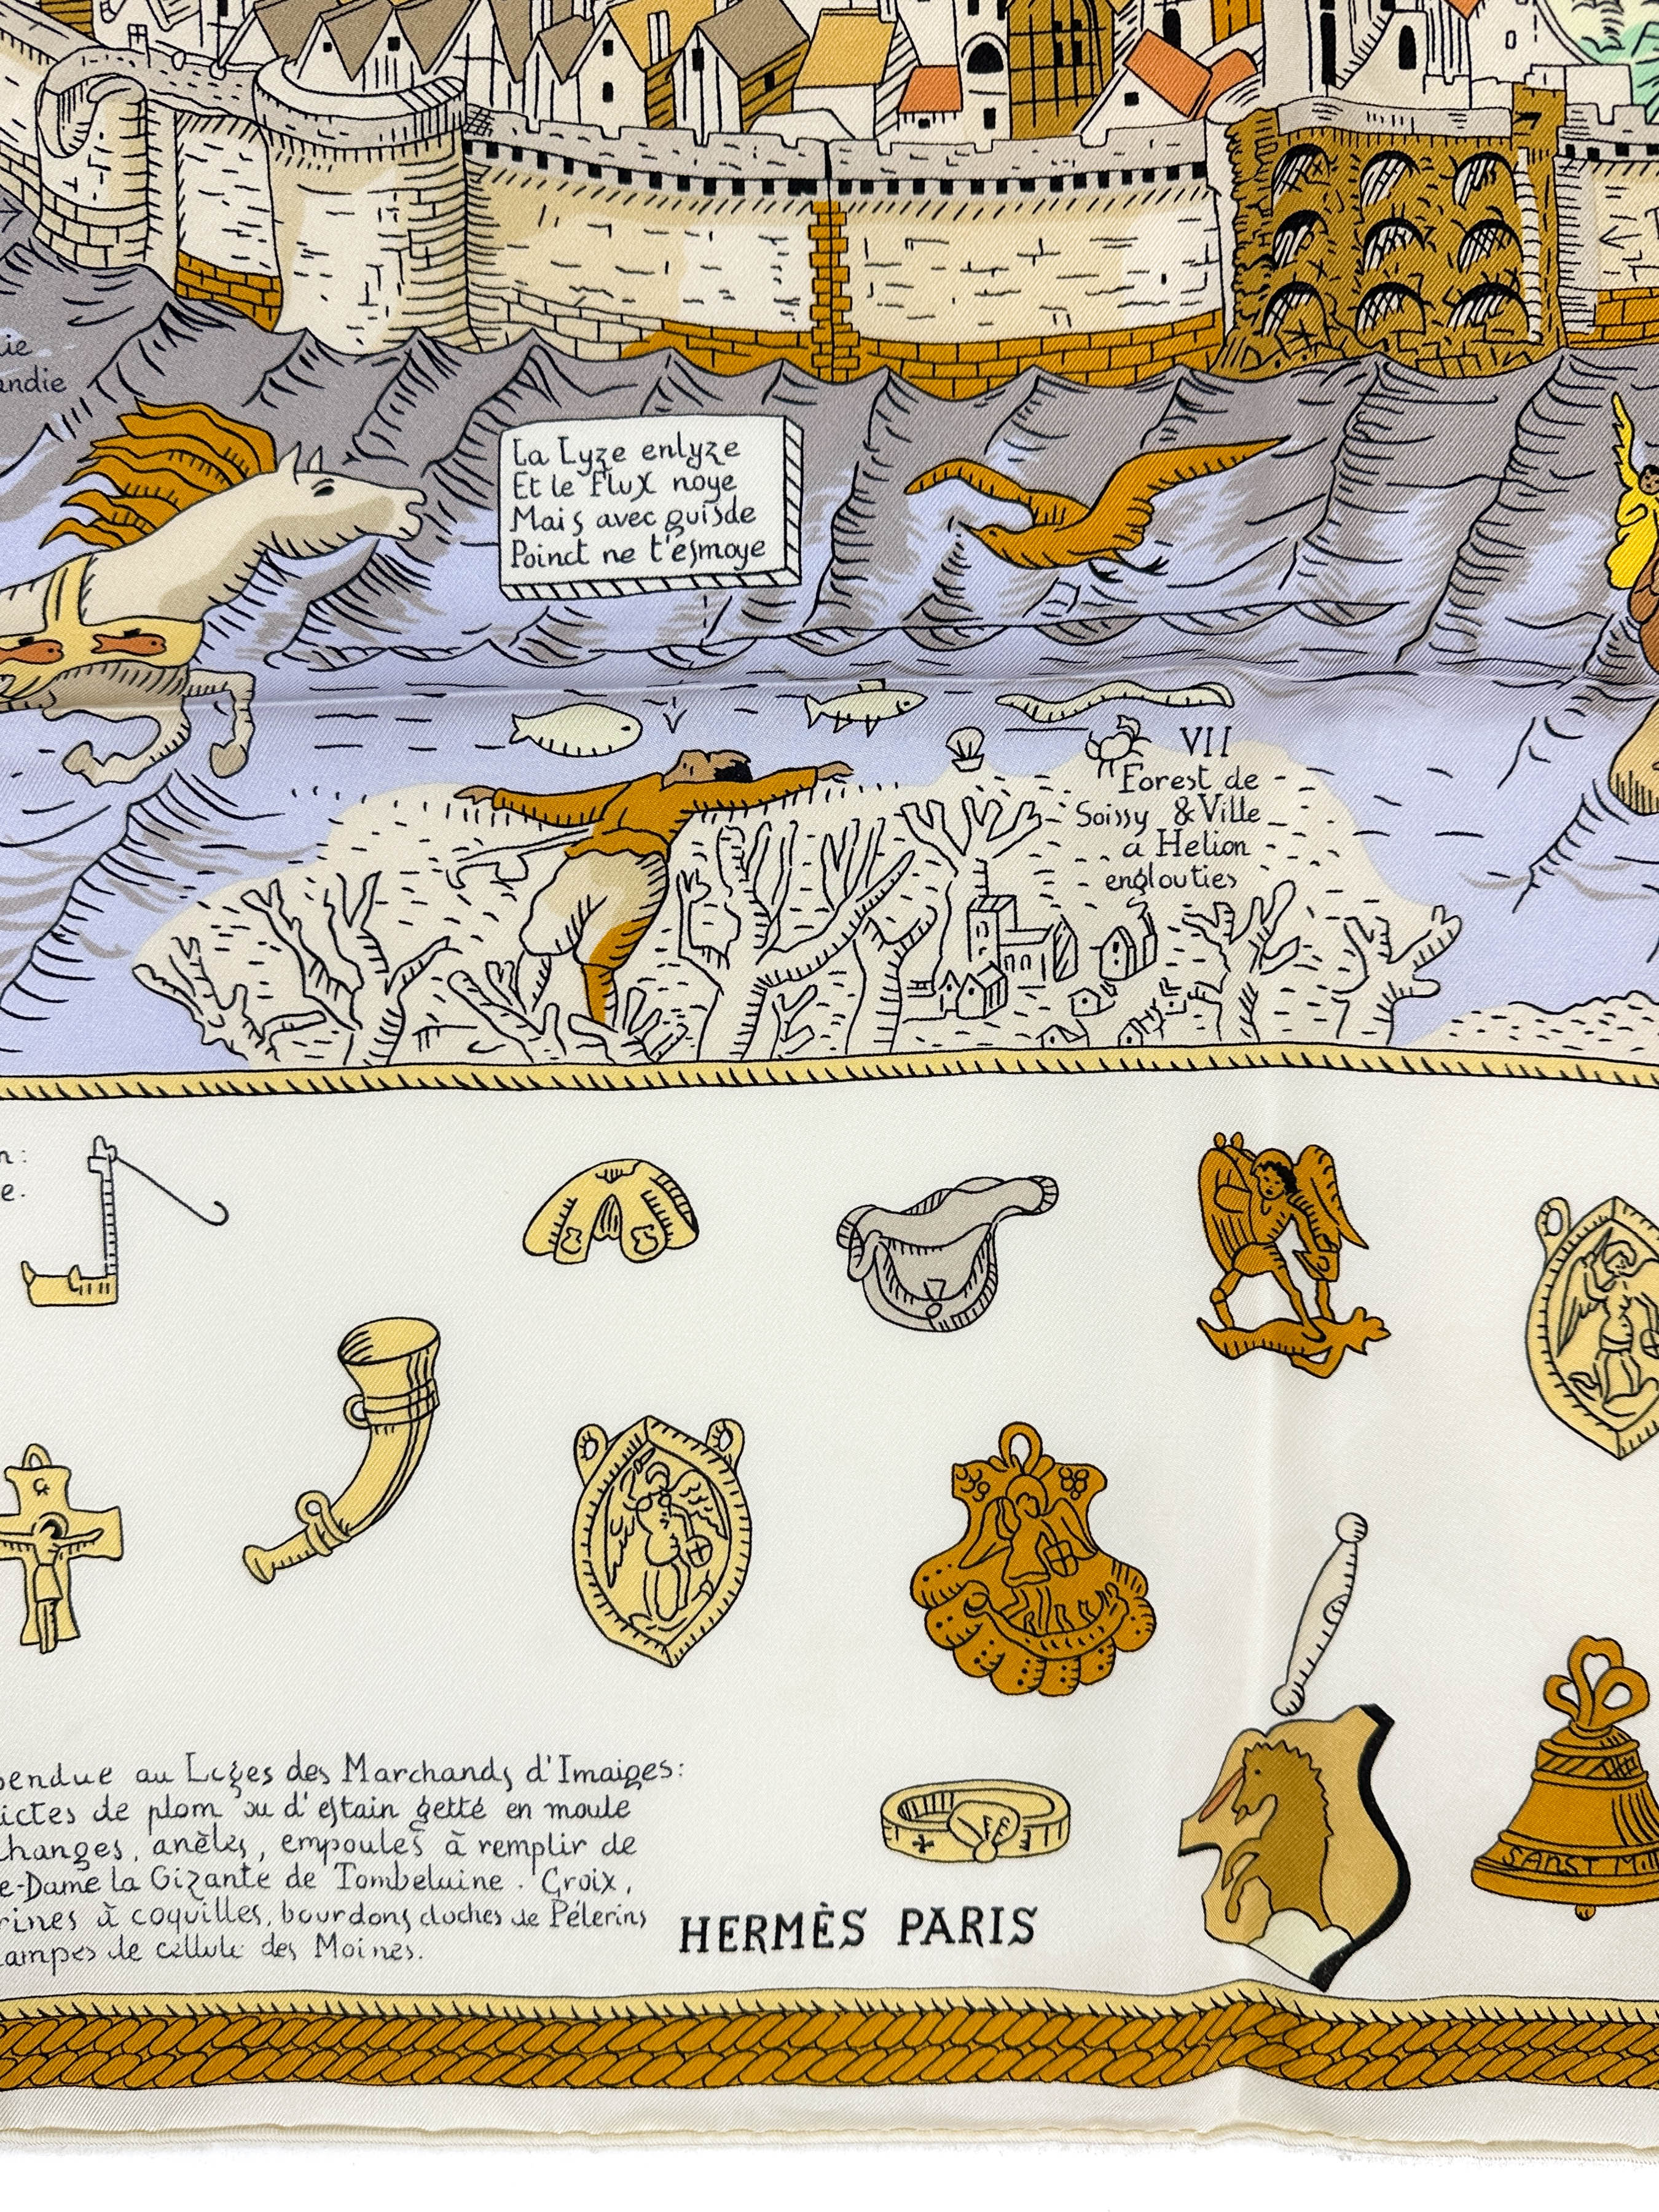 ie
andie
La Lyze enlyze
Et le flux noye
Mais avec guisde
Poinct ne t'esmoye
VII
Forest de
Soissy & Ville
a Helion
englouties
n :
e.
pendue au Loges des Marchands d'Imaiges:
ictes de plom ou d'estain getté en moule
changes, anèles, empoules à remplir de
e-Dame la Gizante de Tombelaine. Croix,
rines à coquilles, bourdons cloches de Pélerins
ampes de cellule des Moines.
HERMÈS PARIS
SANST M